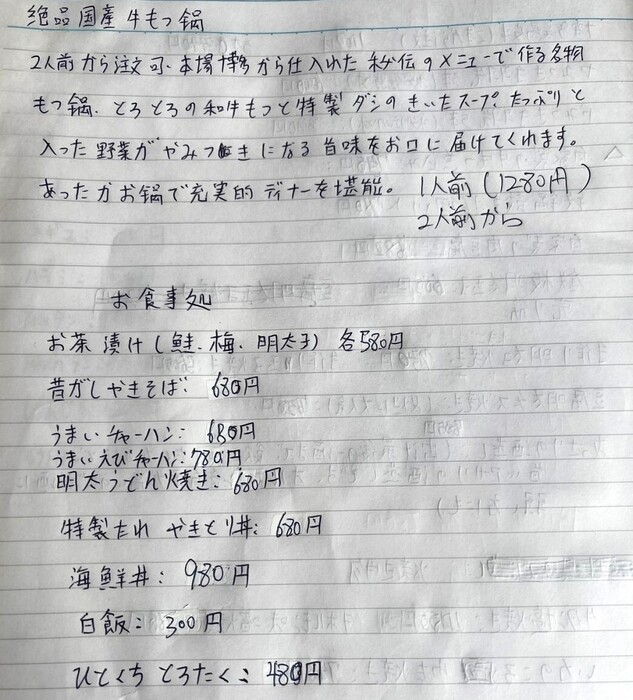 絶品国産牛もつ鍋
2人前から注文可、本場博多から仕入れた秘伝のメニューで作る名物
もつ鍋、とろとろの和牛もつと特製ダシのきいたスープ。たっぷりと
入った野菜がやみつきになる旨味をお口に届けてくれます。
あったかお鍋で充実的ディナーを堪能。 1人前(1280円)
2人前から
お食事処
お茶漬け(鮭、梅、明太子) 各580円
昔がしやきそば: 680円
うまいチャーハン: 680円
うまいえびチャーハン:780円
明太うどん焼き: 680円
特製たれ やきとり丼: 680円
海鮮丼: 980円
白飯: 300円
ひとくち とろたく: 480円